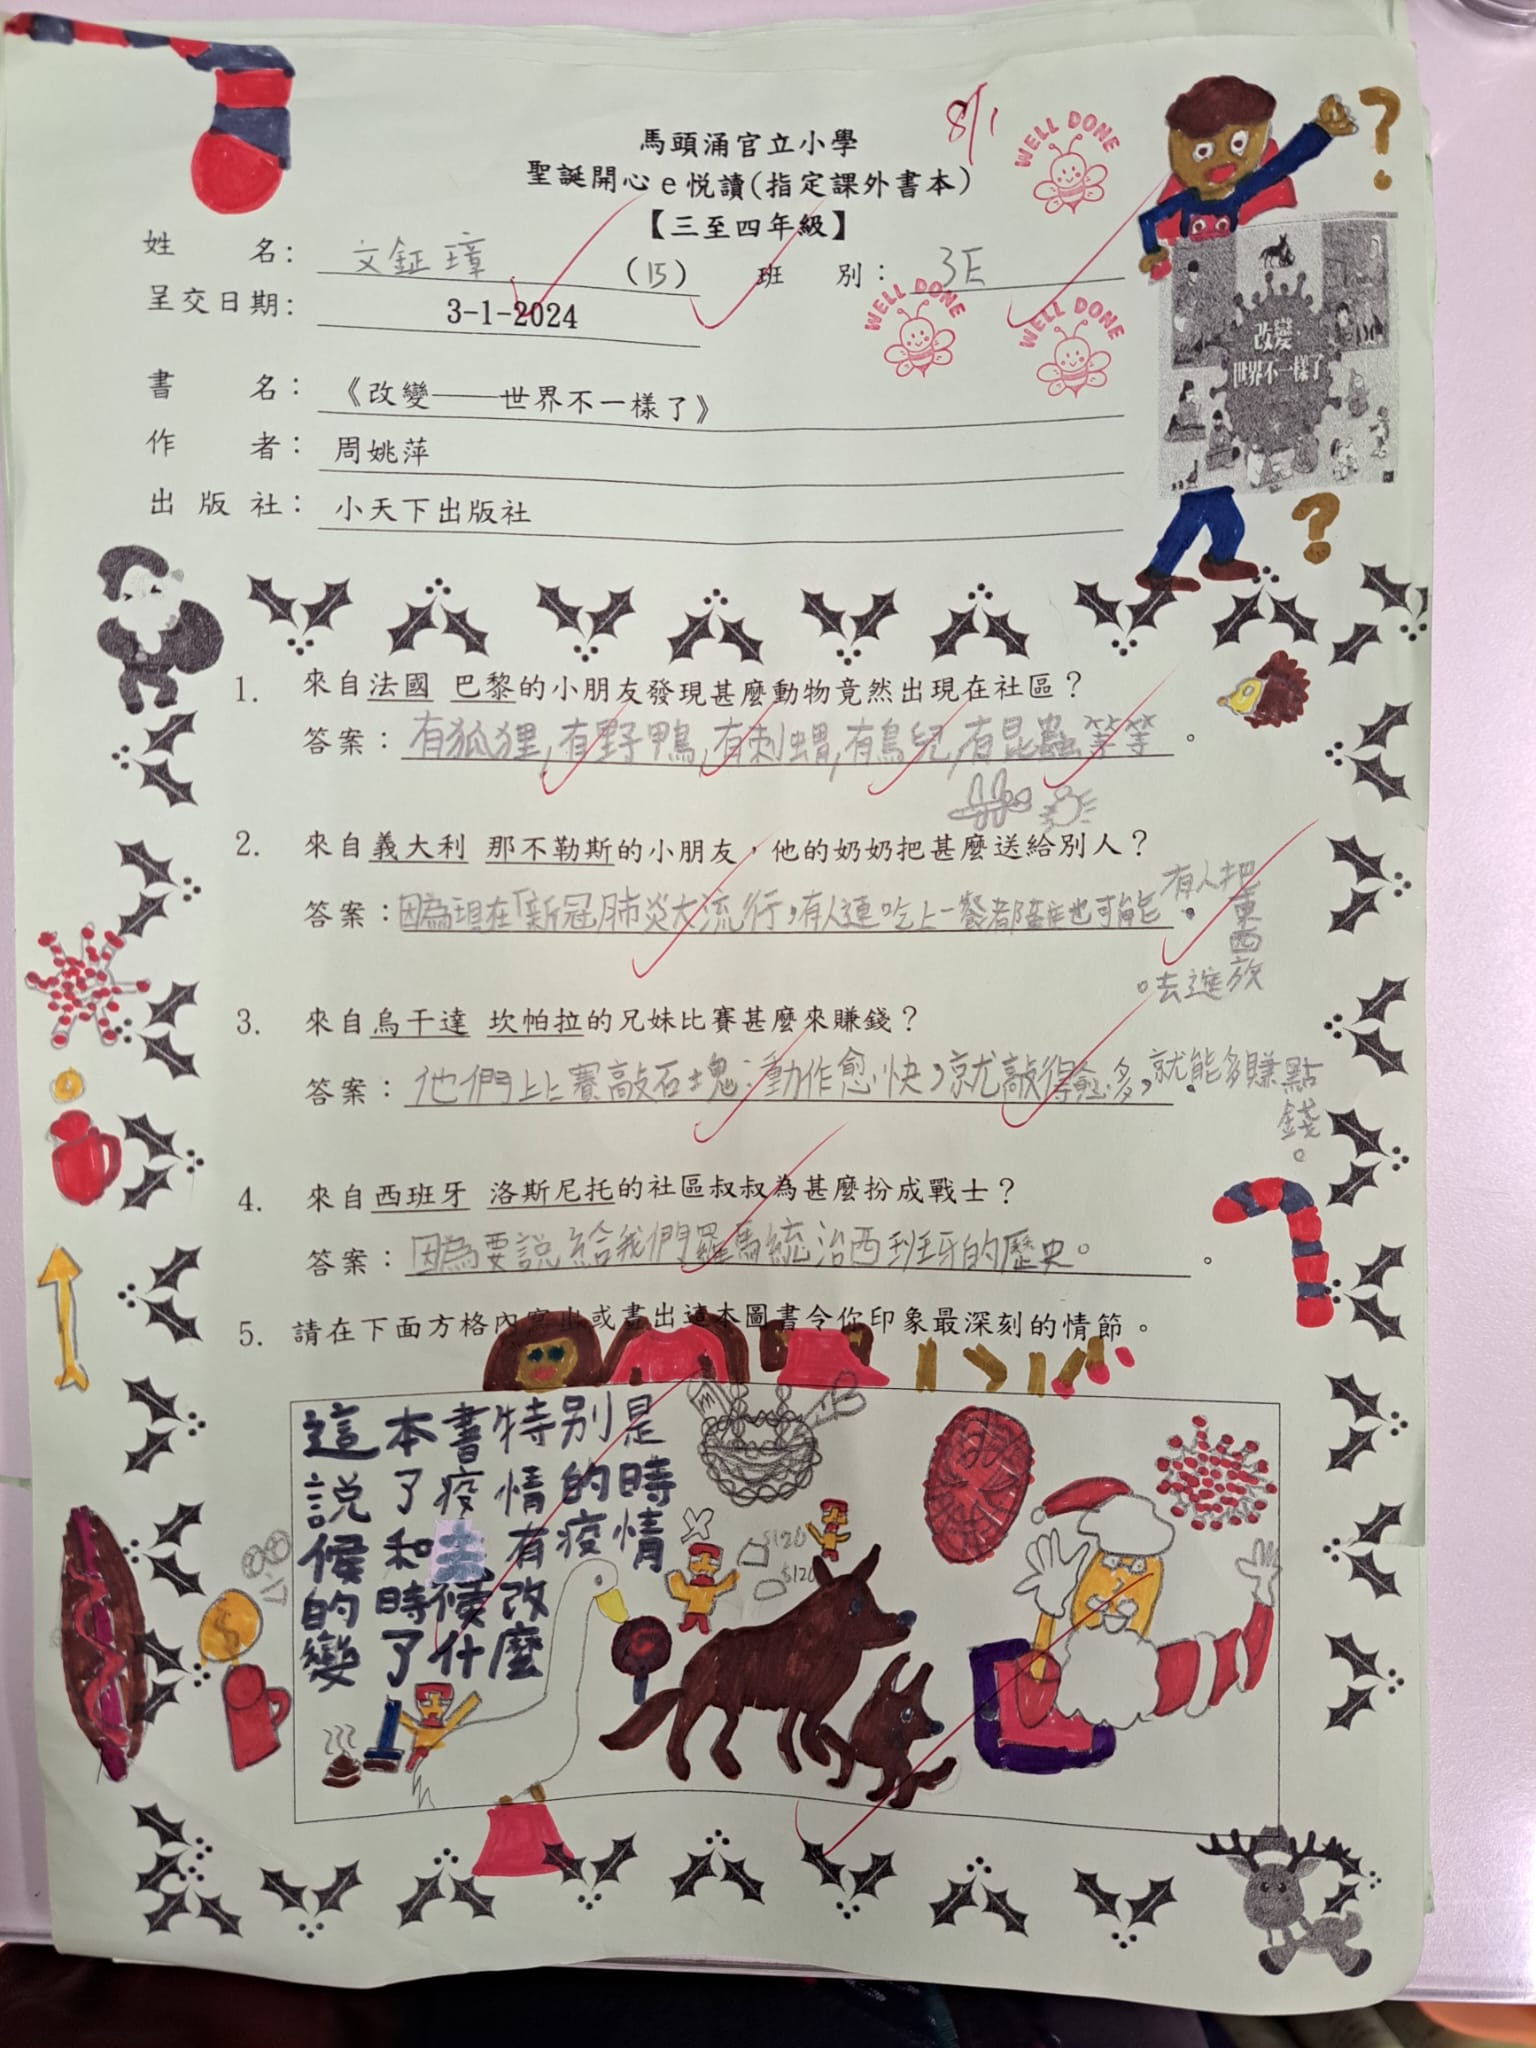 馬頭涌官立小學
聖誕開心e悅讀(指定課外書本)
【三至四年級】
8/1
WELL DONE
姓 名: 文鉦璋 (15) 班 別: 3E
呈交日期: 3-1-2024
WELL DONE
WELL DONE
書 名: 《改變——世界不一樣了》
作 者: 周姚萍
出 版 社: 小天下出版社
改變
世界不一樣了
?
?
1. 來自法國 巴黎的小朋友發現甚麼動物竟然出現在社區?
答案: 有狐狸,有野鴨,有刺蝟,有鳥兒,有昆蟲等等。
2. 來自義大利 那不勒斯的小朋友,他的奶奶把甚麼送給別人?
答案: 因為現在「新冠肺炎大流行,有人連吃上一餐都難也可能。有人把東西放進去。
3. 來自烏干達 坎帕拉的兄妹比賽甚麼來賺錢?
答案: 他們上比賽敲石塊:動作愈快,就敲得愈多,就能多賺點錢。
4. 來自西班牙 洛斯尼托的社區叔叔為甚麼扮成戰士?
答案: 因為要説給我們羅馬統治西班牙的歷史。
5. 請在下面方格內寫出或畫出這本圖書令你印象最深刻的情節。
這本書特別是
説了疫情的時
候和 有疫情
的時候改
變了什麼
$120
$120
$